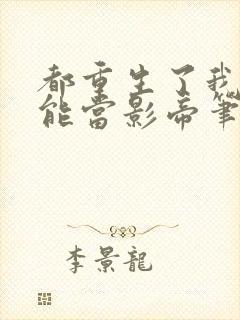 都重生了我
能当影帝笔
李景龍